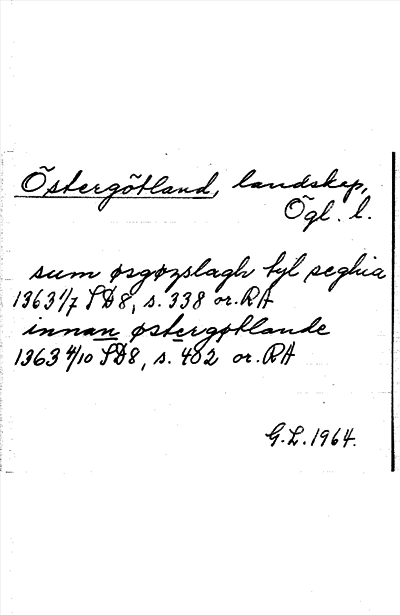 Östergötland, landskap,
Ögl. l.
sum øsgøzslagh tyl seghia
1363 1/7 SD8, s. 338 or. RA
innan østergøtlande
1363 4/10 SD8, s. 402 or. RA
G.L. 1964.